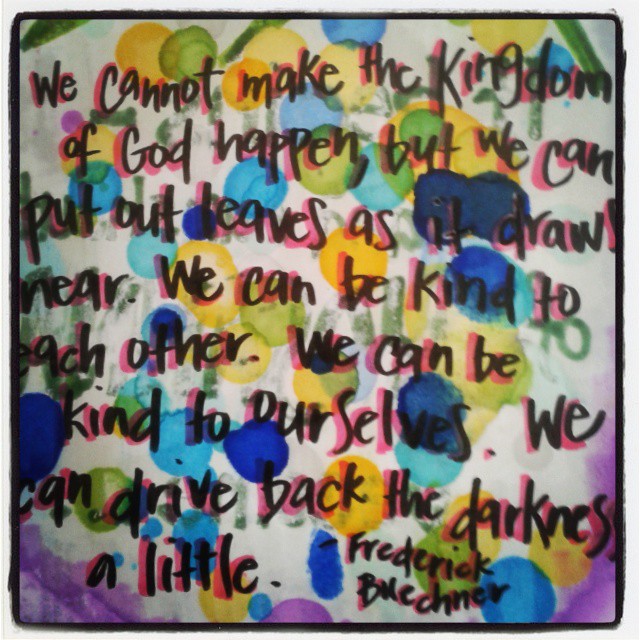 We cannot make the Kingdom
of God happen, but we can
put out leaves as it draws
near. We can be kind to
each other. We can be
kind to ourselves. We
can drive back the darkness
a little. - Frederick
Buechner